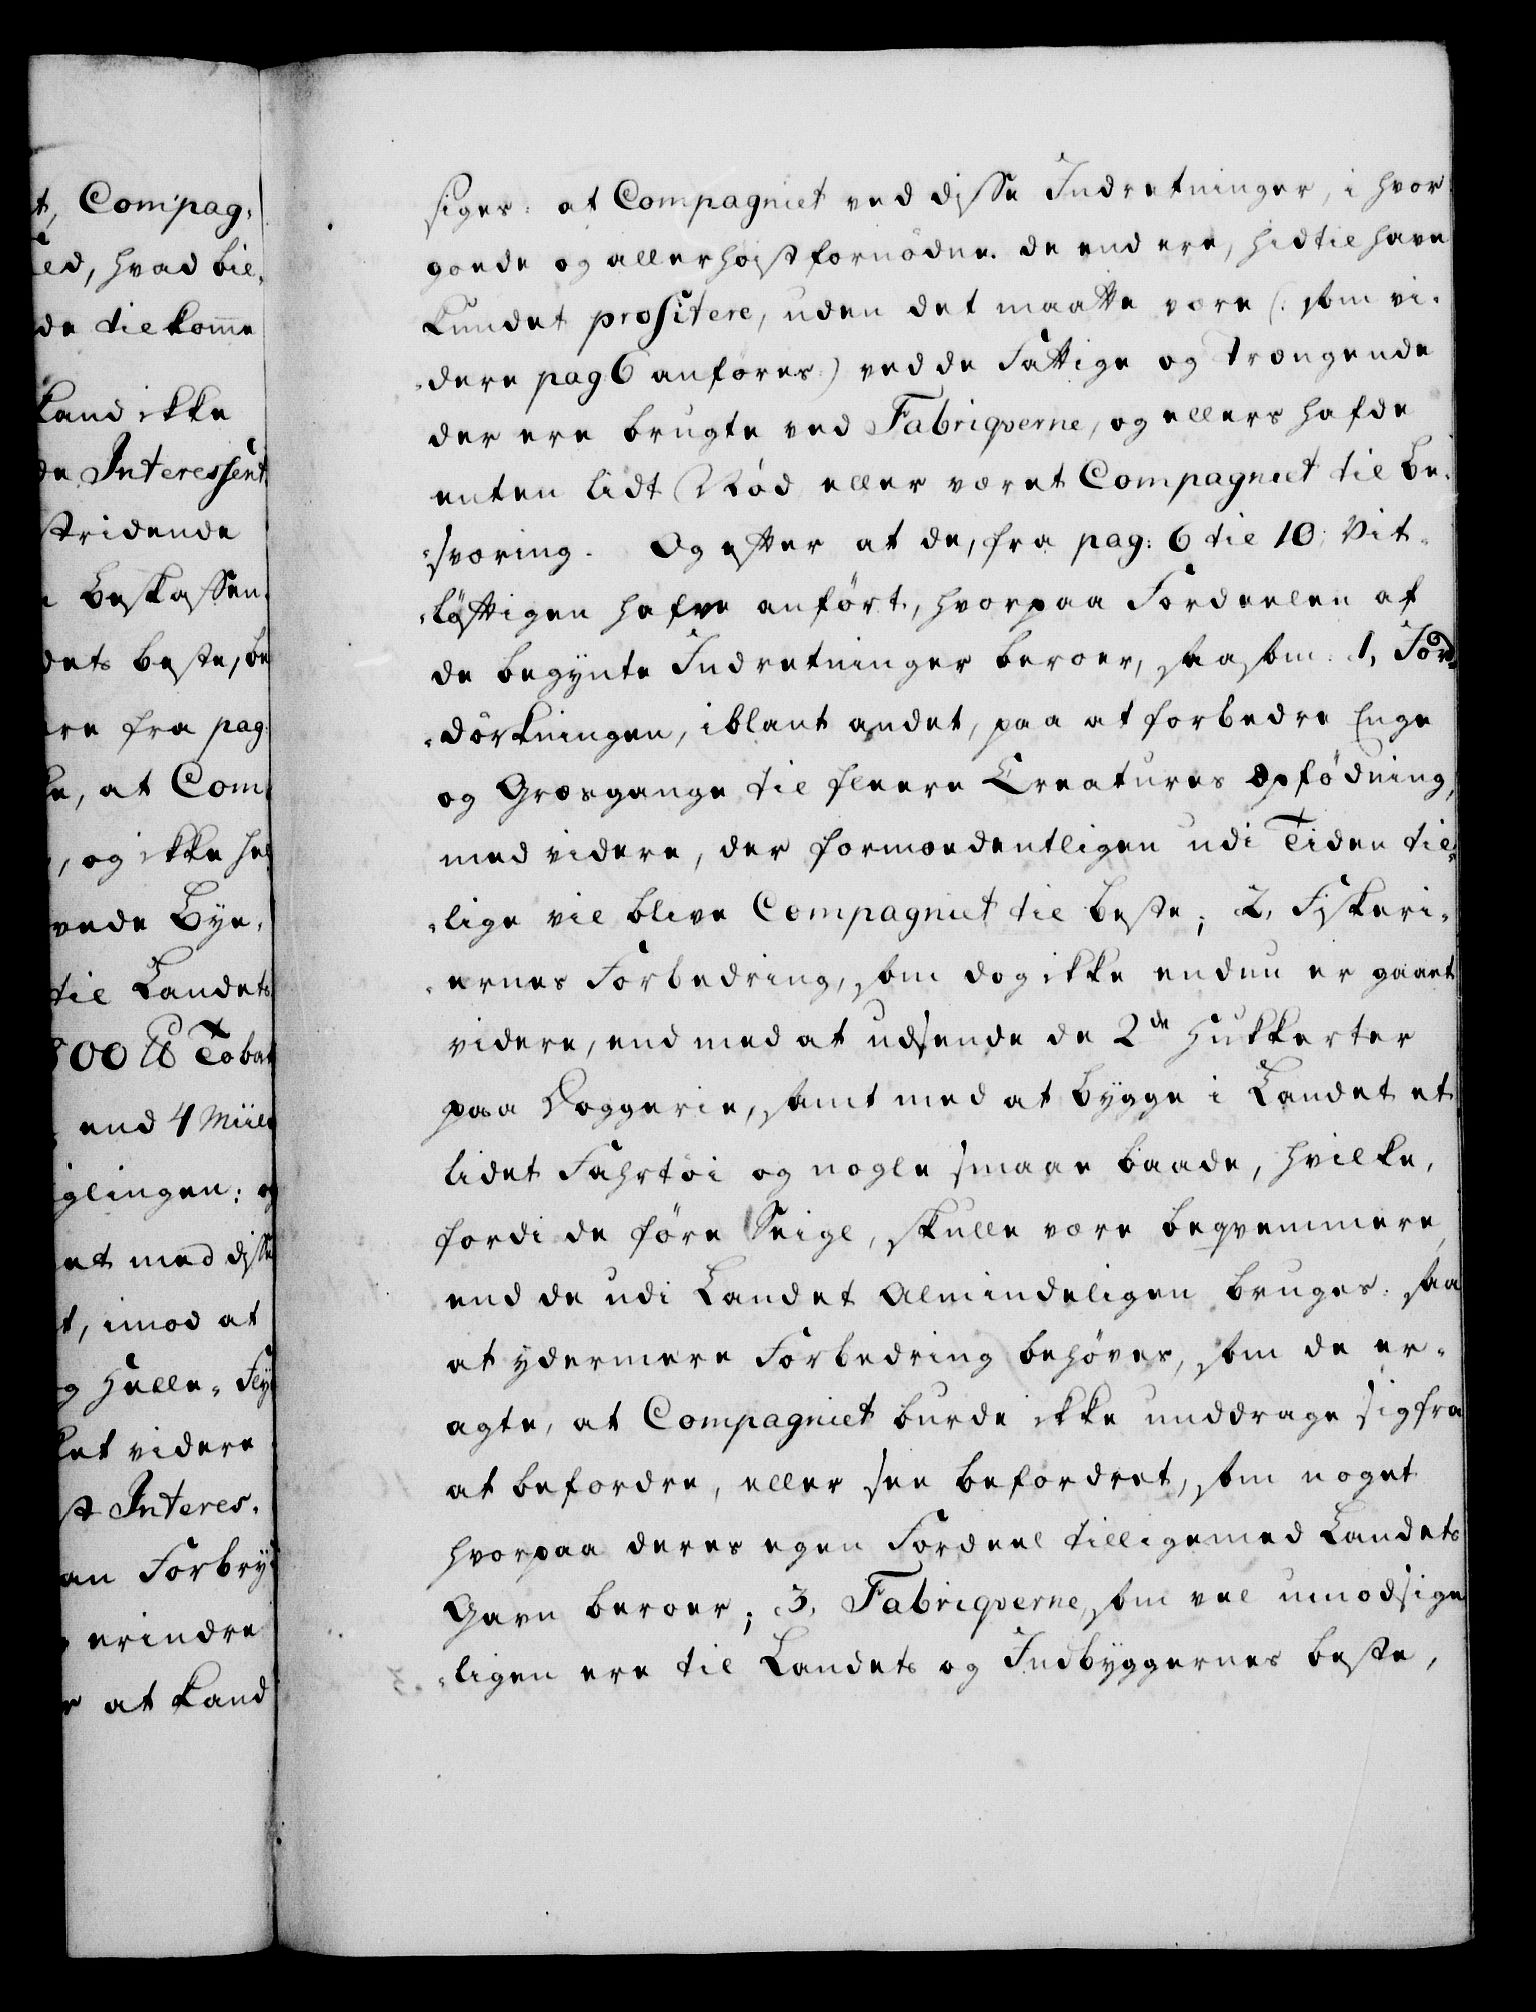 t, Compag¬
led, hvad bil¬
de til komme
kand ikke
de Interessent¬
stridende
Beskaffen¬
dets beste, be
ere fra pag:
ke, at Com¬
, og ikke hel
vede Bye¬
til Landets
800 ℔ Tobak
end 4 Miile
glingen: og
et med disse
t, imod at
g Helle-Fly
ket videre
st Interes¬
an Forbry
erindre
r at kand
siges: at Compagniet ved disse Indretninger, i hvor
goede og allerhøist fornødne de end ere, hidtil have
kundet profitere, uden det maatte være (: som vi¬
dere pag 6 anføres:) ved de Fattige og Trængende
der ere brugte ved Fabriqverne, og ellers hafde
enten lidt Nød eller været Compagniet til be¬
sværing. Og efter at de, fra pag: 6 til 10: Vit¬
løftigen hafve anført, hvorpaa Fordeelen af
de begynte Indretninger beroer, saasom: 1, Jord¬
dörkningen, iblant andet, paa at forbedre Enge
og Græsgange til fleere Creatures Opfödning,
med videre, der formoedentligen udi Tiden til¬
lige vil blive Compagniet til beste; 2, Fiskeri¬
ernes Forbedring, som dog ikke endnu er gaaet
videre, end med at udsende de 2de Hukkerter
paa Doggerie, samt med at bygge i Landet et
lidet Fahrtøi og nogle smaae baade, hvilke,
fordi de före Seigl, skulle være beqvemmere,
end de udi Landet Almindeligen bruges: saa
at ydermere Forbedring behöves, som de er¬
agte, at Compagniet burde ikke unddrage sig fra
at befordre, eller see befordret, som noget
hvorpaa deres egen Fordeel tilligemed Landets
Gavn beroer; 3, Fabriqverne, som vel umodsige
ligen ere til Landets og Indbyggernes beste,